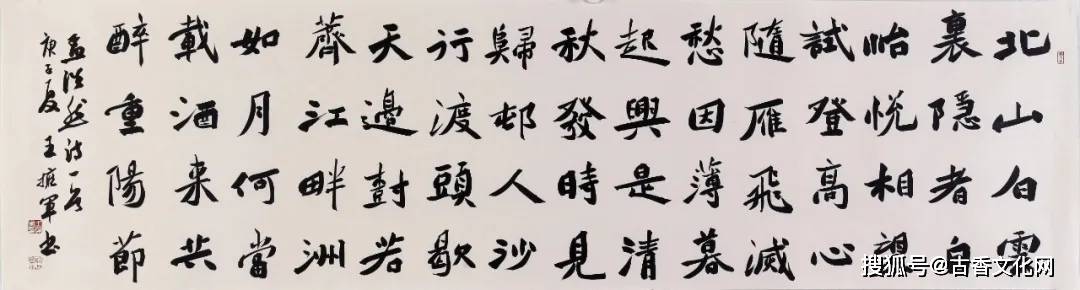 北山白雲
裏隐者自
怡悦相視
試登高心
隨雁飛滅
愁因薄暮
起興是清
秋發時見
歸邨人沙
行渡頭歇
天邊樹若
薺江畔洲
如月何當
載酒来共
醉重陽節
孟浩然诗一首
庚子夏 王擁軍书
搜狐号@古香文化网